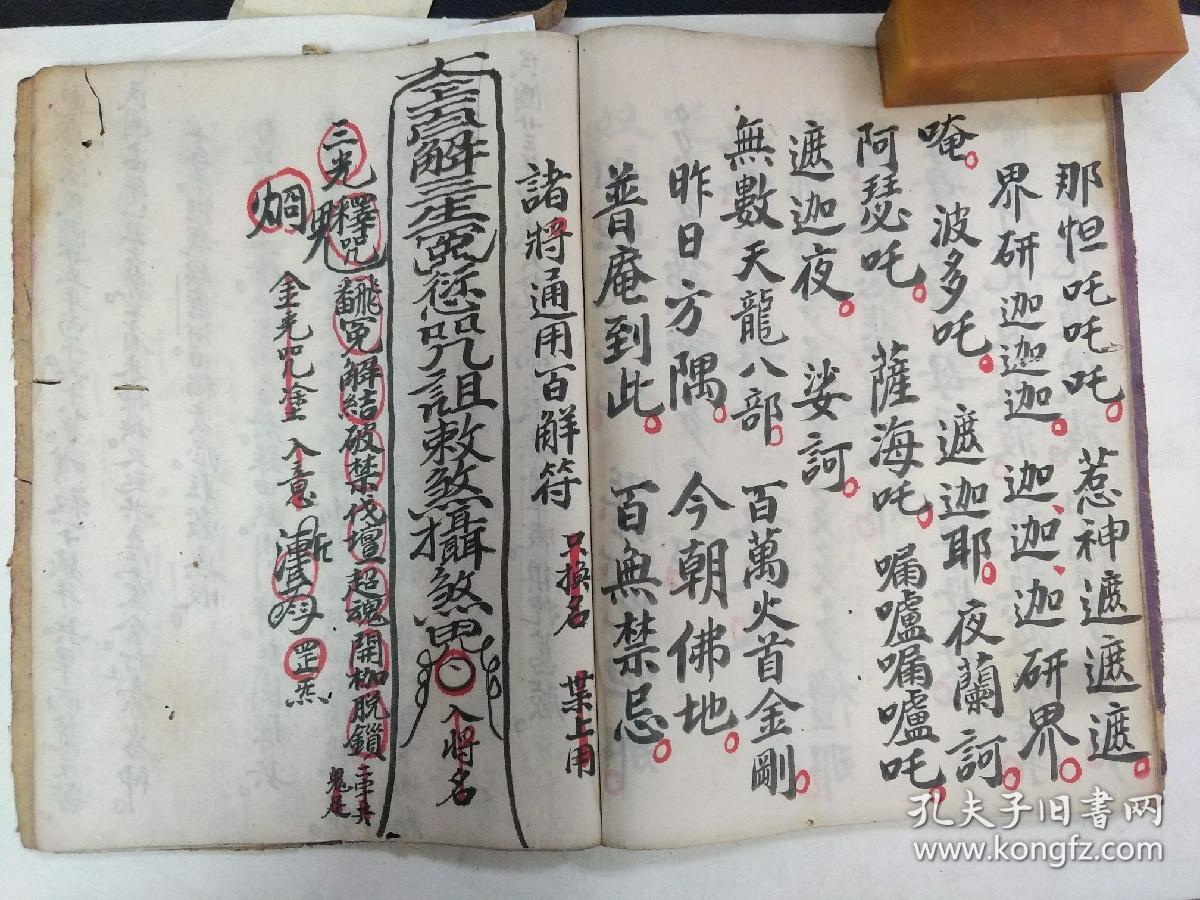 那怛吒吒吒。惹神遮遮遮。
界研迦迦迦。迦、迦、迦研界。
唵。波多吒。遮迦耶。夜蘭訶。
阿瑟吒。薩海吒。嘱嚧嘱嚧吒。
遮迦夜。娑訶。
無數天龍八部。百萬火首金剛。
昨日方隅。今朝佛地。
普庵到此。百無禁忌。
諸將通用百解符
只換名 業上用
解三生冤愆咒詛敕煞攝煞 入將名
三光 釋咒 冤解結破禁伐壇超魂開枷脫鎖
金光咒塗 入意 罡炁
孔夫子旧书网
www.kongfz.com